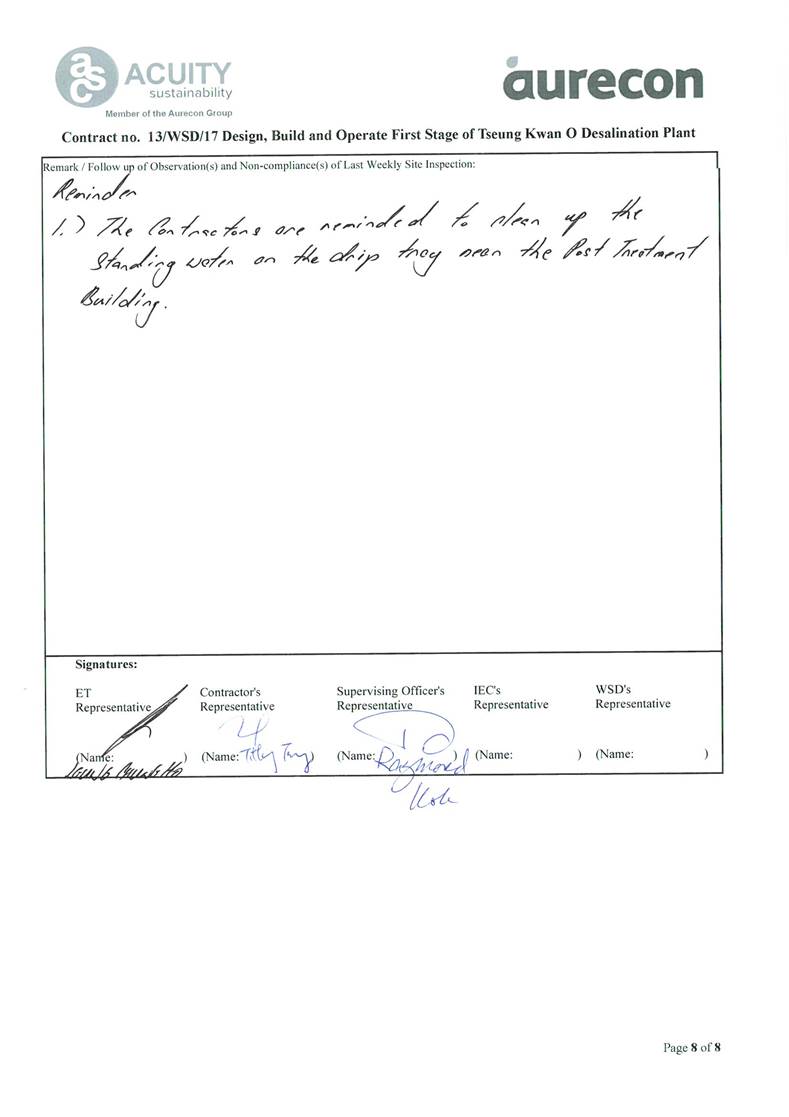 asc ACUITY
sustainability
Member of the Aurecon Group
aurecon
Contract no. 13/WSD/17 Design, Build and Operate First Stage of Tseung Kwan O Desalination Plant
Remark / Follow up of Observation(s) and Non-compliance(s) of Last Weekly Site Inspection:
Reminder
1.) The Contractors are reminded to clean up the
standing water on the drip tray near the Post Treatment
Building.
Signatures:
ET Representative
Contractor's Representative
Supervising Officer's Representative
IEC's Representative
WSD's Representative
(Name: )
(Name: )
(Name: Raymond
(Name: )
(Name: )
Page 8 of 8